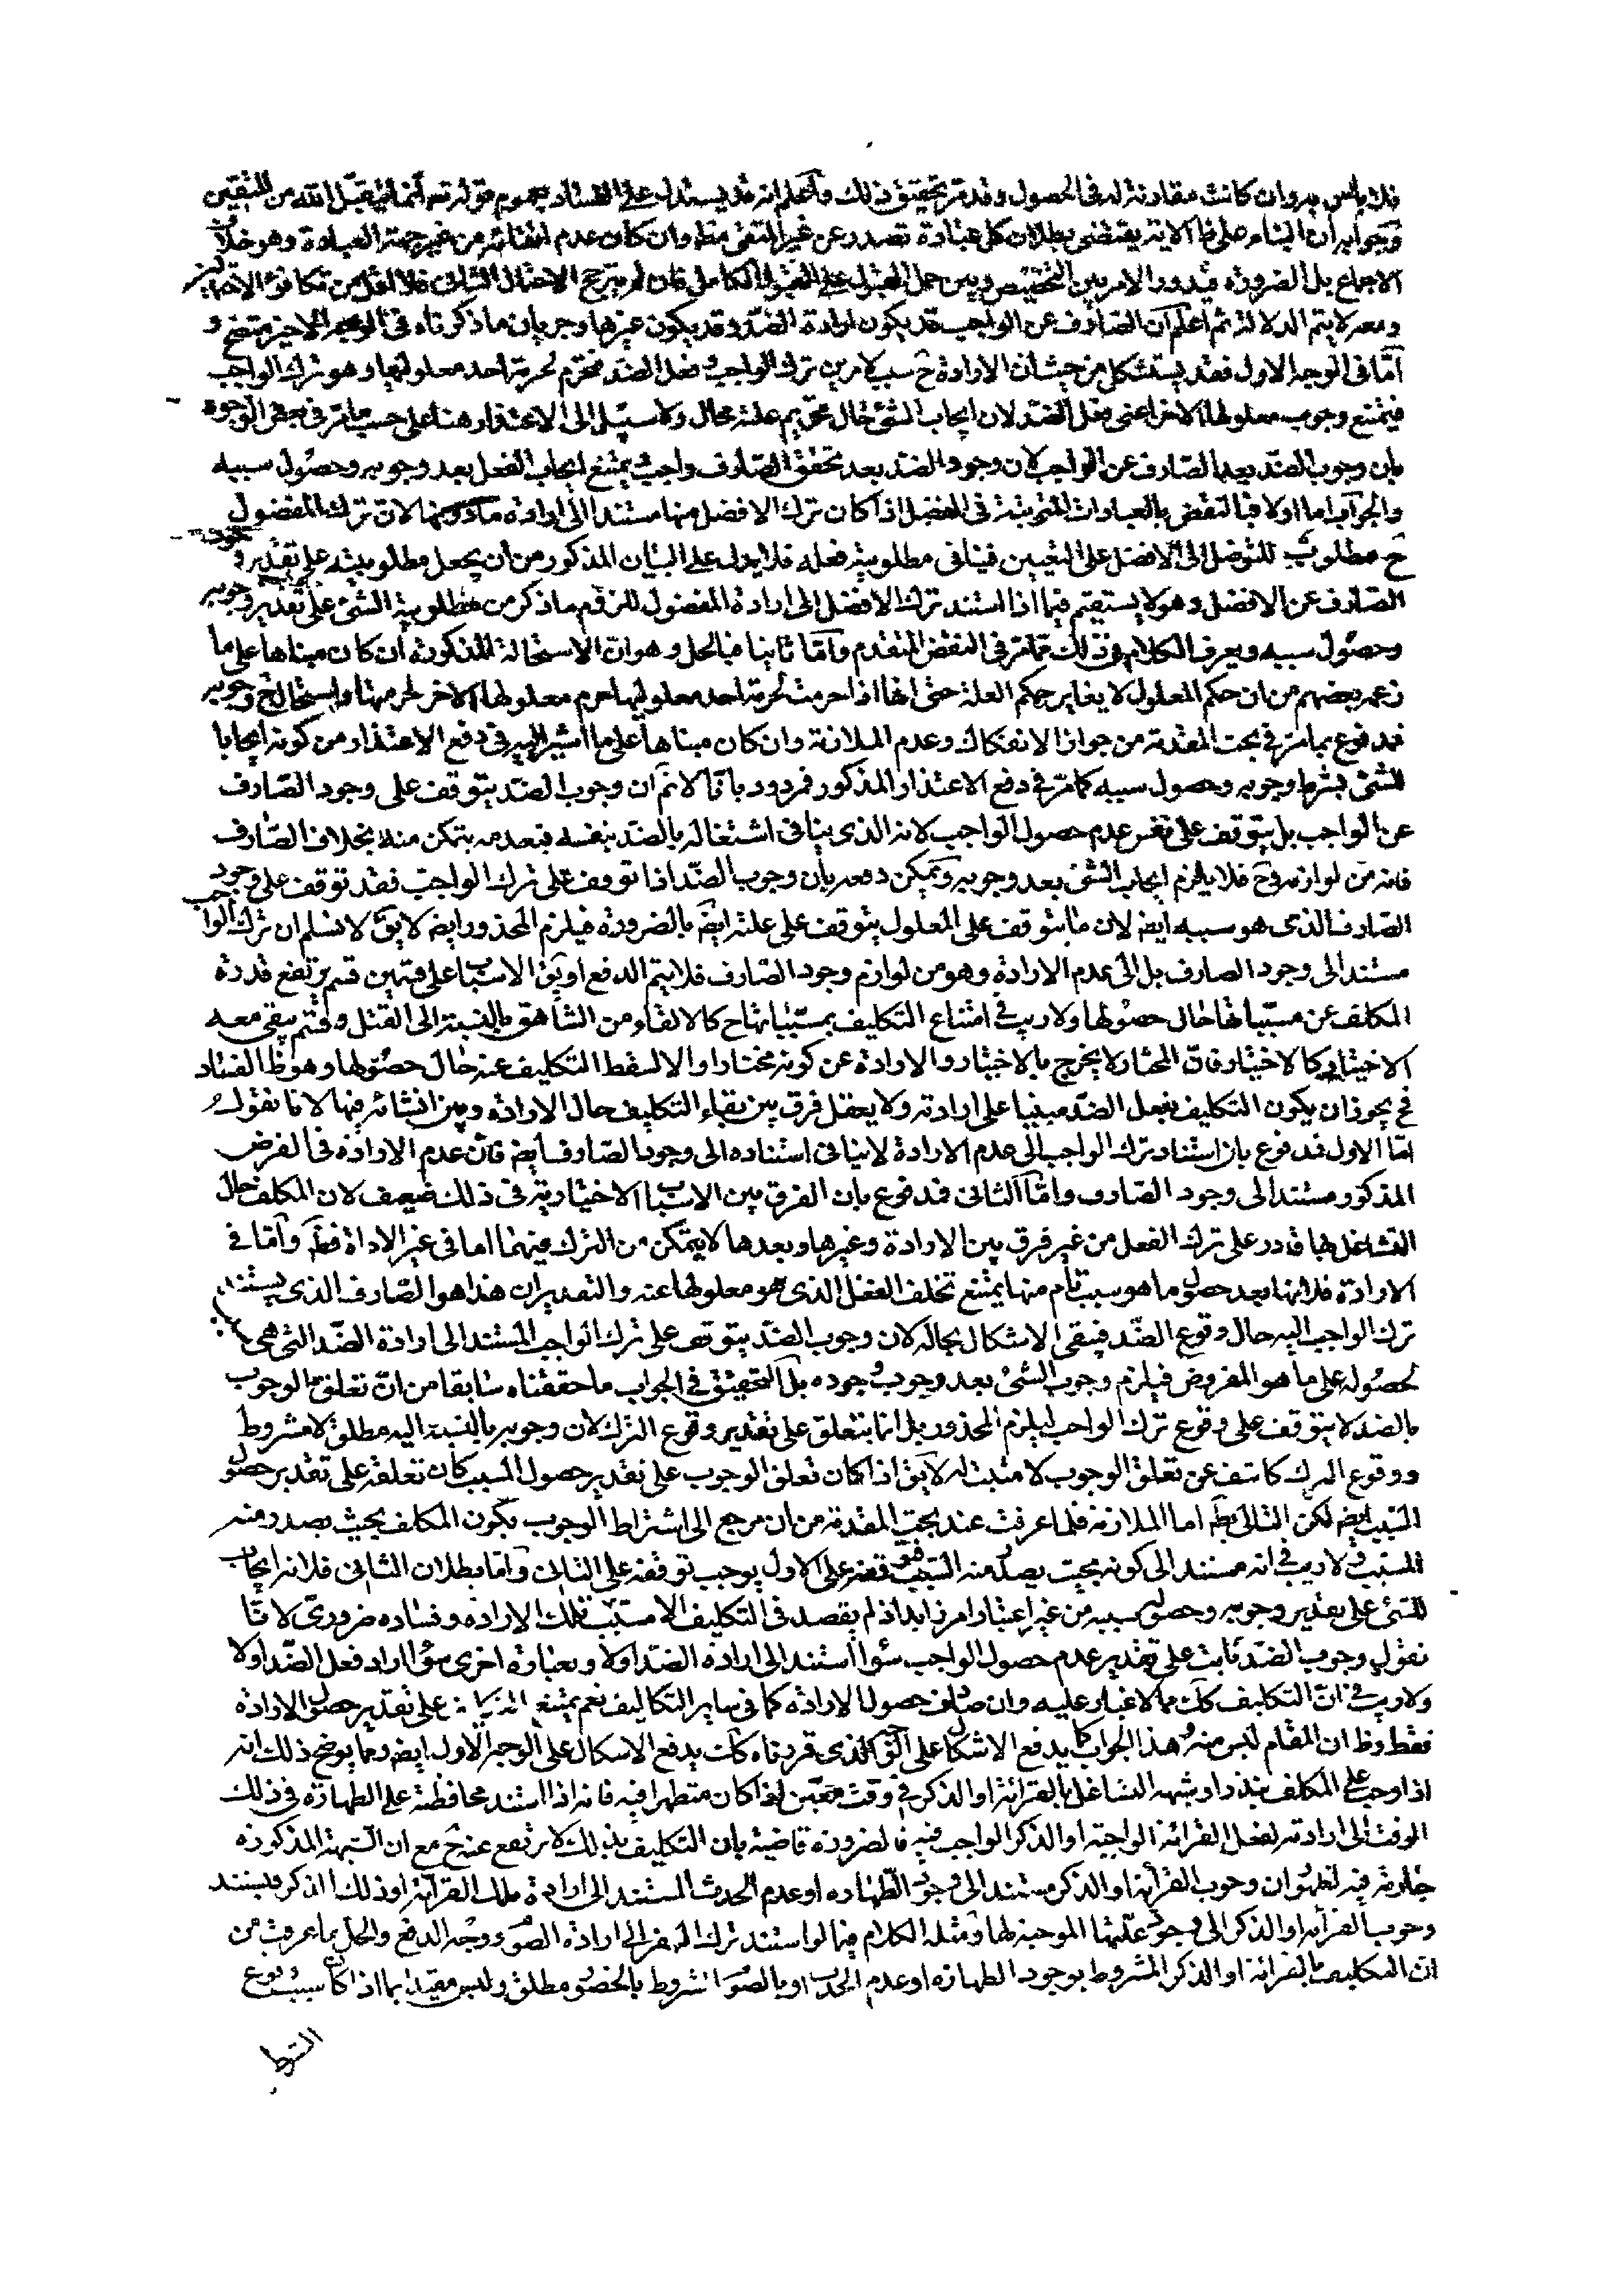 فلا باس به وان كانت مقارنة له في الحصول وقد مر تحقيق ذلك واعلم انه قد يستدل على الفساد بعموم قوله تعالى انما يتقبل الله من المتقين
وجوابه ان البناء على الاية يقتضى بطلان كل عبادة تصدر عن غير المتقى مط وان كان عدم اتقائه من غير جهة العبادة وهو خلاف
الاجماع بل الضرورة فيدور الامر بين التخصيص وبين حمل القبول على القبول الكامل فان لم يترجح الاحتمال الثانى فلا اقل من تكافؤ الاحتمالين
ومعه لا يتم الدلالة ثم اعلم ان الصارف عن الواجب قد يكون ارادة الضد وقد يكون غيرها وجريان ما ذكرناه في الوجه الاخير متضح و
امّا في الوجه الاول فقد يستشكل من حيث ان الارادة ح سبب لامرين ترك الواجب و فعل الضد فتحرم لحرمة احد معلوليها وهو ترك الواجب
فيمتنع وجوب معلولها الاخر اعنى فعل الضد لان ايجاب الشئ حال تحريم علته محال ولا سبيل الى الاعتذار هنا على حسب ما مر في بعض الوجوه
بان وجوب الضد بعد الصارف عن الواجب لان وجود الضد بعد تحقق الصارف واجب يمتنع ايجاب الفعل بعد وجوبه وحصول سببه
والجواب اما اولا فبالنقض بالعبادات المتخيرة في الفضل اذا كان ترك الافضل منها مستندا الى ارادة ما دونها لان ترك المفضول
ح مطلوب للتوصل الى الافضل على التعيين فينافى مطلوبية فعله فلا بد على البيان المذكور من ان يجعل مطلوبيته على تقدير وجود
الصارف عن الافضل وهو لا يستقيم فيما اذا استند ترك الافضل الى ارادة المفضول للزوم ما ذكر من مطلوبية الشئ على تقدير وجوبه
وحصول سببه ويعرف الكلام في ذلك مما مر في النقض المتقدم وامّا ثانيا فبالحل وهو ان الاستحالة المذكورة ان كان مبناها على ما
زعمه بعضهم من ان حكم المعلول لا يغاير حكم العلة حتى انها اذا حرمت لحرمة احد معلوليها حرم معلولها الاخر لحرمتها واستحال ح وجوبه
فمدفوع بما مر في بحث المقدمة من جواز الانفكاك وعدم الملازمة وان كان مبناها على ما اشير اليه في دفع الاعتذار من كونه ايجابا
للشئ بشرط وجوبه وحصول سببه كما مر في دفع الاعتذار المذكور فمردود بانّا لا نم ان وجوب الضد يتوقف على وجود الصّارف
عن الواجب بل يتوقف على نفس عدم حصول الواجب لانه الذى ينافى اشتغاله بالضد بنفسه فبعدمه يتمكن منه بخلاف الصّارف
فانه من لوازمه وح فلا يلزم ايجاب الشئ بعد وجوبه ويمكن دفعه بان وجوب الضد اذا توقف على ترك الواجب فقد توقف على وجود
الصارف الذى هو سببه ايض لان ما يتوقف على المعلول يتوقف على علته ايض بالضرورة فيلزم المحذور ايض لا يق لا نسلم ان ترك الواجب
مستند الى وجود الصارف بل الى عدم الارادة وهو من لوازم وجود الصّارف فلا يتم الدفع او يق الاسباب على قسمين قسم يرتفع قدرة
المكلف عن مسبباتها حال حصولها ولا ريب في امتناع التكليف بمسبباتها ح كالالقاء من الشاهق بالنسبة الى القتل وقسم يبقى معه
الاختيار كالاختيار فانّ المختار لا يخرج بالاختيار والارادة عن كونه مختارا والا لسقط التكليف عنه حال حصولها وهو ظ الفساد
فح يجوز ان يكون التكليف بفعل الضد مبنيا على ارادته ولا يعقل فرق بين بقاء التكليف حال الارادة وبين انشائه فيها لانا نقول
امّا الاول فمدفوع بان استناد ترك الواجب الى عدم الارادة لا ينافى استناده الى وجود الصّارف ايض فان عدم الارادة في الفرض
المذكور مستند الى وجود الصّارف وامّا الثانى فمدفوع بان الفرق بين الاسباب الاختيارية في ذلك ضعيف لان المكلف حال
التشاغل بها قادر على ترك الفعل من غير فرق بين الارادة وغيرها وبعدها لا يتمكن من الترك فيهما اما في غير الارادة فظ وامّا في
الارادة فلانها بعد حصول ما هو سبب تام منها يمتنع تخلف الفعل الذى هو معلولها عنه والتقدير ان هذا هو الصّارف الذى يستند
ترك الواجب اليه حال وقوع الضّد فيبقى الاشكال بحاله لان وجوب الضد يتوقف على ترك الواجب المستند الى ارادة الضّد التى هى
لحصوله على ما هو المفروض فيلزم وجوب الشئ بعد وجوب وجوده بل التحقيق في الجواب ما حققناه سابقا من انّ تعلق الوجوب
بالضد لا يتوقف على وقوع ترك الواجب ليلزم المحذور بل انما يتعلق على تقدير وقوع الترك لان وجوبه بالنسبة اليه مطلق لا مشروط
ووقوع الترك كاشف عن تعلق الوجوب لا مثبت له لا يق اذا كان تعلق الوجوب على تقدير حصول المسبب كان تعلقه على تقدير حصول
السبب ايض لكن التالى بط اما الملازمة فلما عرفت عند بحث المقدمة من ان مرجع الى اشتراط الوجوب بكون المكلف بحيث يصدر منه
المسبب ولا ريب في انه مستند الى كونه بحيث يصدر منه السبب فتوقفه على الاول يوجب توقفه على الثانى وامّا بطلان الثانى فلانه ايجاب
للشئ على تقدير وجوبه وحصول سببه من غير اعتبار امر زايد اذ لم يقصد في التكليف الا مسبب تلك الارادة وفساده ضرورىّ لانّا
نقول وجوب الضد ثابت على تقدير عدم حصول الواجب سواء استند الى ارادة الضد اولا وبعبارة اخرى سواء اراد فعل الضد اولا
ولا ريب في انّ التكليف كك مما لا غبار عليه وان صادف حصول الارادة كما في ساير التكاليف نعم يمتنع على تقدير حصول الارادة
فقط وظ ان المقام ليس منه وهذا الجواب كما يدفع الاشكال على الوجه الذى قررناه كك يدفع الاشكال على الوجه الاول ايض ومما يوضح ذلك انه
اذا وجب على المكلف بنذر او شبهه التشاغل بالقرائة او الذكر في وقت معيّن اذا كان متطهرا فيه فانه اذا استند محافظته على الطهارة في ذلك
الوقت الى ارادته لفعل القرائة الواجبة او الذكر الواجب فيه فالضرورة قاضية بان التكليف بذلك لا يرتفع عنه ح مع ان الشبهة المذكورة
جارية فيه لظهور ان وجوب القرائة او الذكر مستند الى وجود الطّهارة او عدم الحدث المستند الى ارادة تلك القرائة او ذلك الذكر فيستند
وجوب القرائة او الذكر الى وجود علّتها الموجبة لها ومثله الكلام فيما لو استند ترك السفر الى ارادة الصوم ووجه الدفع والحل ما عرفت من
انّ التكليف بالقرائة او الذكر المشروط بوجود الطهارة او عدم الحدث او بالصوم المشروط بالحضور مطلق وليس مقيدا بما اذا كان سبب وقوع
الشرط